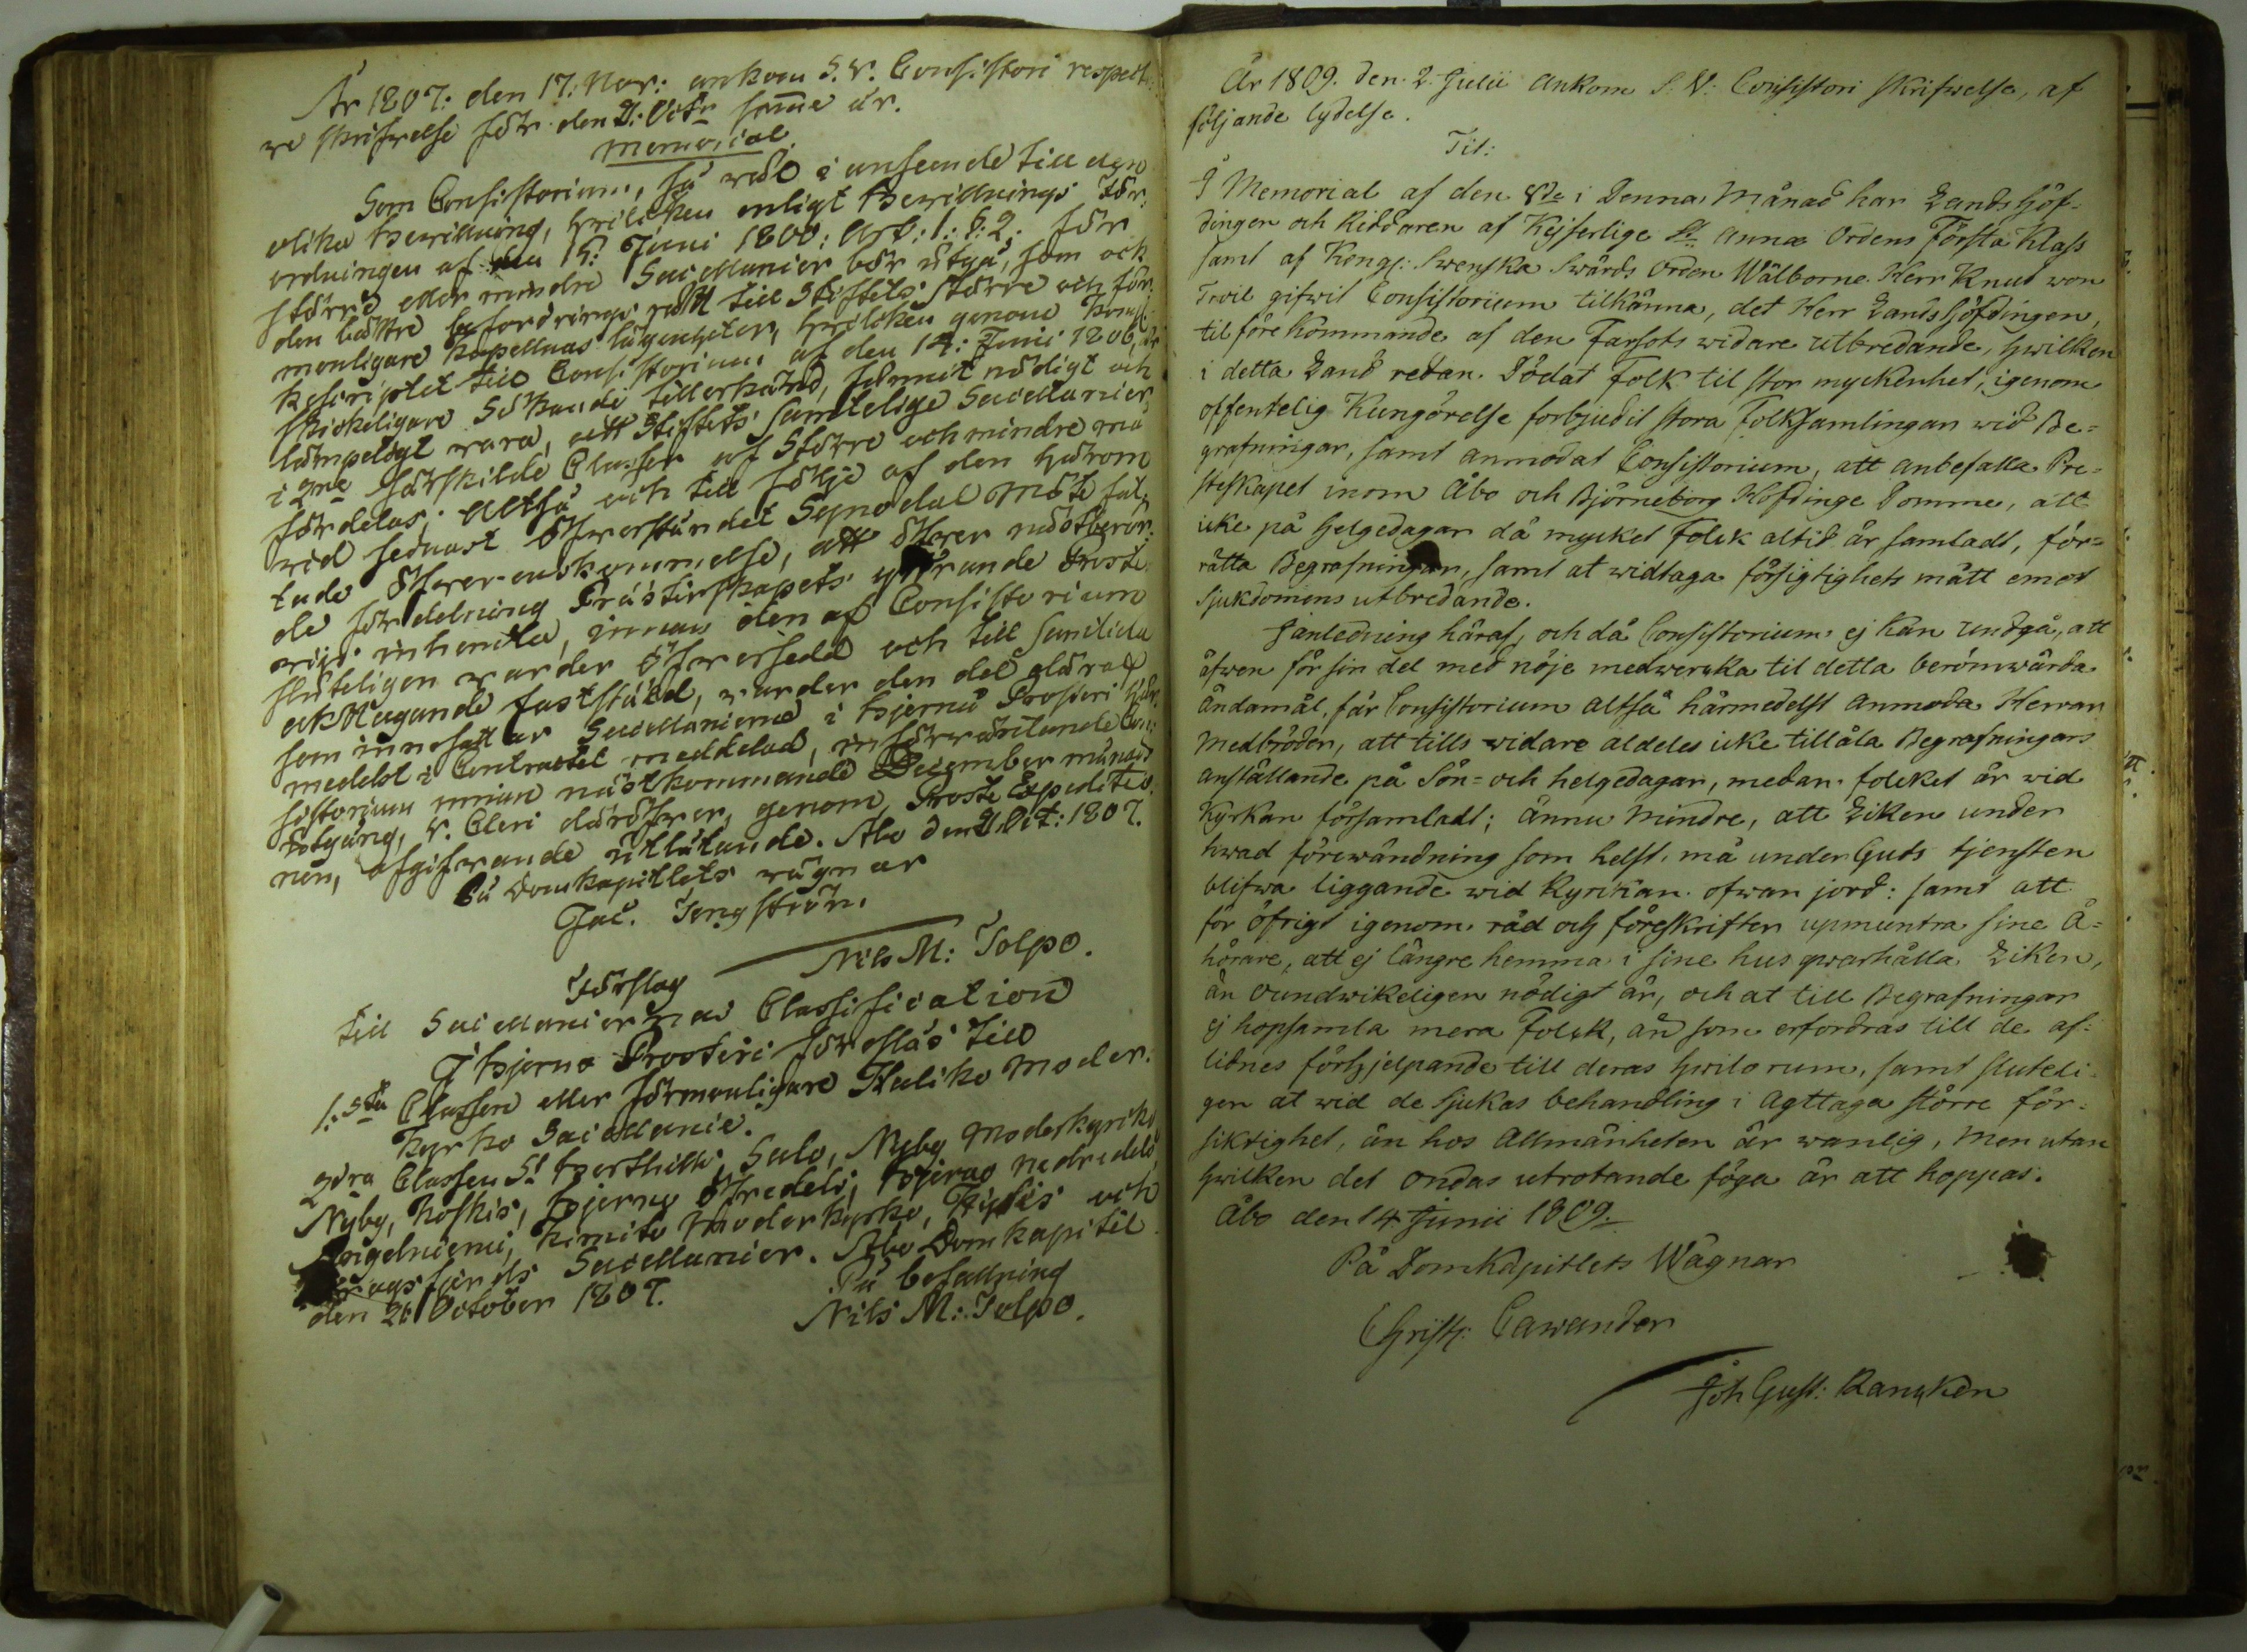 År 1807: den 17: Nov: ankom S. V. Consistori respect:
ve skrifwelse för den 21: Octr samme år.
Memorial.
Som Consistorium, så wäl i anseende till den
olika Bewillning, hwilcken enligt Bewillnings För,
ordningen af den 15: Juni 1800: Art: 1: §: 2. för
större eller mindre Sacellanier bör utgå, som ock
den bättre befordrings rätt till Stiftets större och för,
monligare Kapellans lägenheter, hwilcken genom Kongl:
Rescriptet till Consistorium af den 14: Juni 1806, de
skickeligare Sökande tillerkänd, funnit nödigt och
lämpeligt wara, att Stiftets samtelige Sacellanier
i 2ne särskilde Classer af Större och mindre må
fördelas; Altså och till följe af den härom
wid sednast öfwerståndet Synodal Möte fat,
tade öfwer-enskommelse, att öfwer nästberör,
de fördelning Prästerskapets yttrande Proste-
wijs inhemta, innan den af Consistorium
sluteligen warder öfwersedd och till samtida
ackttagande fastställd, warder den del däraf
som innefattar Sacellanierne i Bjernå Prosteri här,
meddelst i Contractet meddelad, införwäntande Con,
sistorium innan nästkommande December månads
utgång, V. Cleri däröfwer, genom Proste Expeditio,
nen, afgifwande utlåtande. Åbo den 21 Oct: 1807.
På Domkapitlets wägnar
Jac. Tengström.
Nils M: Tolpo.
Förslag
till Sacellaniernas Classification
I Bjerno Prosteri föreslås till
1:sta Classen eller förmonligare Haliko Moder-
kyrko Sacellanie.
2dra Classen St Berthills Salo, Nyby Moderkyrko
Nyby, Koskis, Bjerno öfredels, Bjerno nedredels
Angelniemi, Kimito Moderkyrko, Hitis och
Dragsfjerds Sacellanier. Åbo Domkapitel
den 21 October 1807.
På befallning
Nils M: Tolpo.
År 1809. den 2. Julii ankom S: V: Consistori skrifwelse, af
följande lydelse.
Tit:
I Memorial af den 8de i denna Månad har Landshöf-
dingen och Riddaren af Kejserlige St Annæ Ordens Första Klass
samt af Kongl: Swenska Swärds Orden Wälborne Herr Knut von
Troil gifwit Consistorium tilkänna, det Herr Landshöfdingen,
til förekommande af den Farsots widare utbredande, hwilken
i detta Land redan dödat Folk til stor myckenhet, igenom
offentelig Kungörelse forbjudit stora Folksamlingar wid Be-
grafningar, samt anmodat Consistorium, att anbefalla Pre-
steskapet inom Åbo och Björneborg Höfdinge Domme, att
icke på helgedagar då mycket Folck altid är samladt, för-
rätta Begrafningar, samt at widtaga försigtighets mått emot
Sjukdomens utbredande.
I anledning häraf, och då Consistorium ej kan undgå, att
äfwen för sin del med nöje medwerka til detta berömwärda
ändamål, får Consistorium altså härmedelst anmoda Herrar
Medbröder, att tills widare aldeles icke tillåta Begrafningars
anställande på Sön- och helgedagar, medan folcket är wid
Kyrkan församladt; ännu mindre, att Liken under
hwad förewändning som helst, må under Guds tjensten
blifwa liggande wid Kyrckan ofwan jord: samt att
för öfrigt igenom råd och föreskrifter upmuntra sine Å-
hörare, att ej längre hemma i sine hus qwarhålla Liken,
än oundwikeligen nödigt är, och at till Begrafningar
ej hopsamla mera Folck, än som erfordras till de af-
lidnes förhjelpande till deras hwilorum, samt sluteli-
gen at wid de sjukas behandling iagttaga större för-
siktighet, än hos Allmänheten är wanlig, men utan
hwilken det ondas utrotande föga är att hoppas.
Åbo den 14 Junii 1809.
På Domkapitlets Wägnar
Christ: Cawander
Joh Gust: Rancken